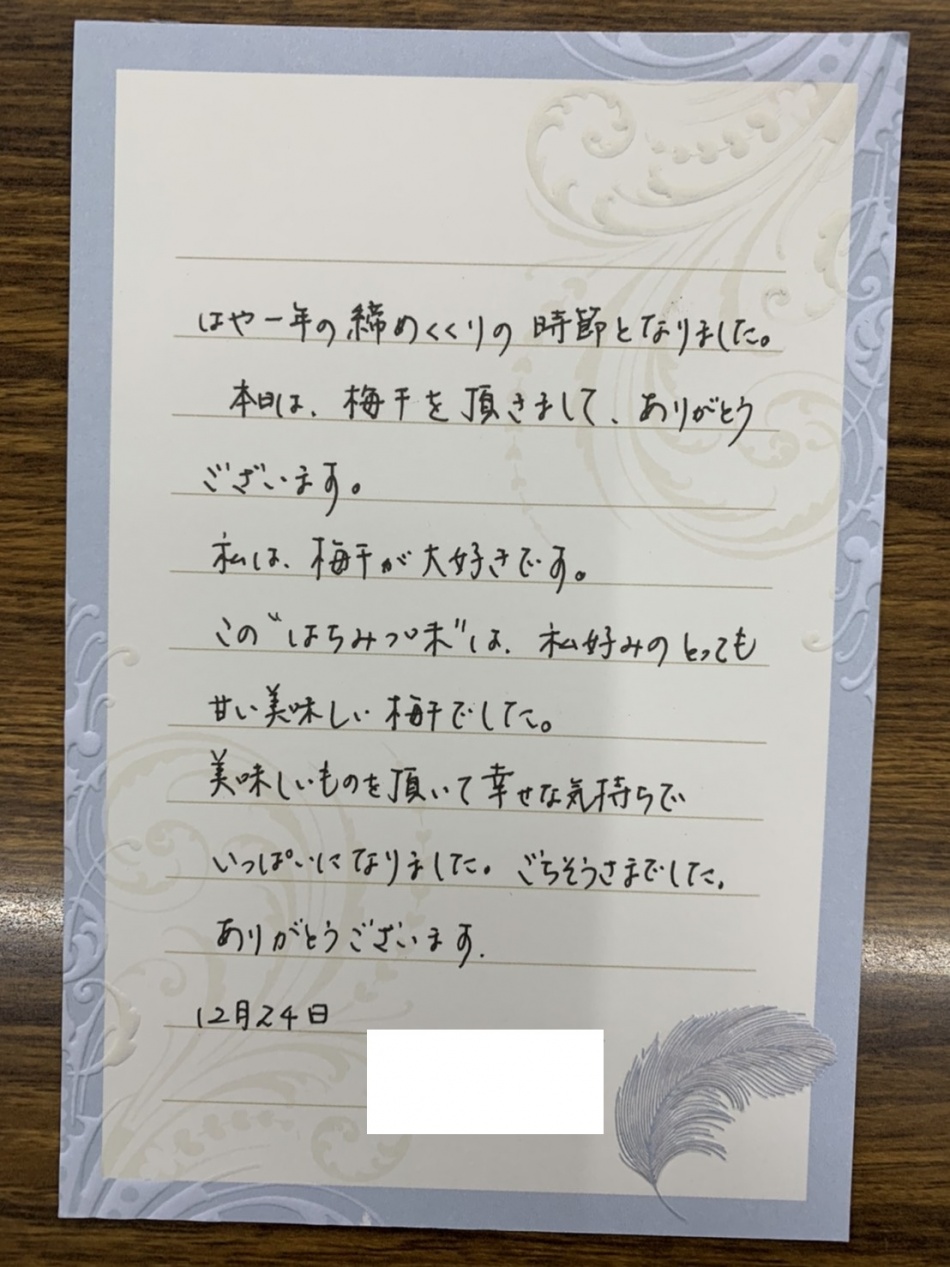 はや一年の締めくくりの時節となりました。
本日は、梅干を頂きまして、ありがとう
ございます。
私は、梅干が大好きです。
この“はちみつ味”は、私好みのとっても
甘い美味しい梅干でした。
美味しいものを頂いて幸せな気持ちで
いっぱいになりました。ごちそうさまでした。
ありがとうございます。
12月24日